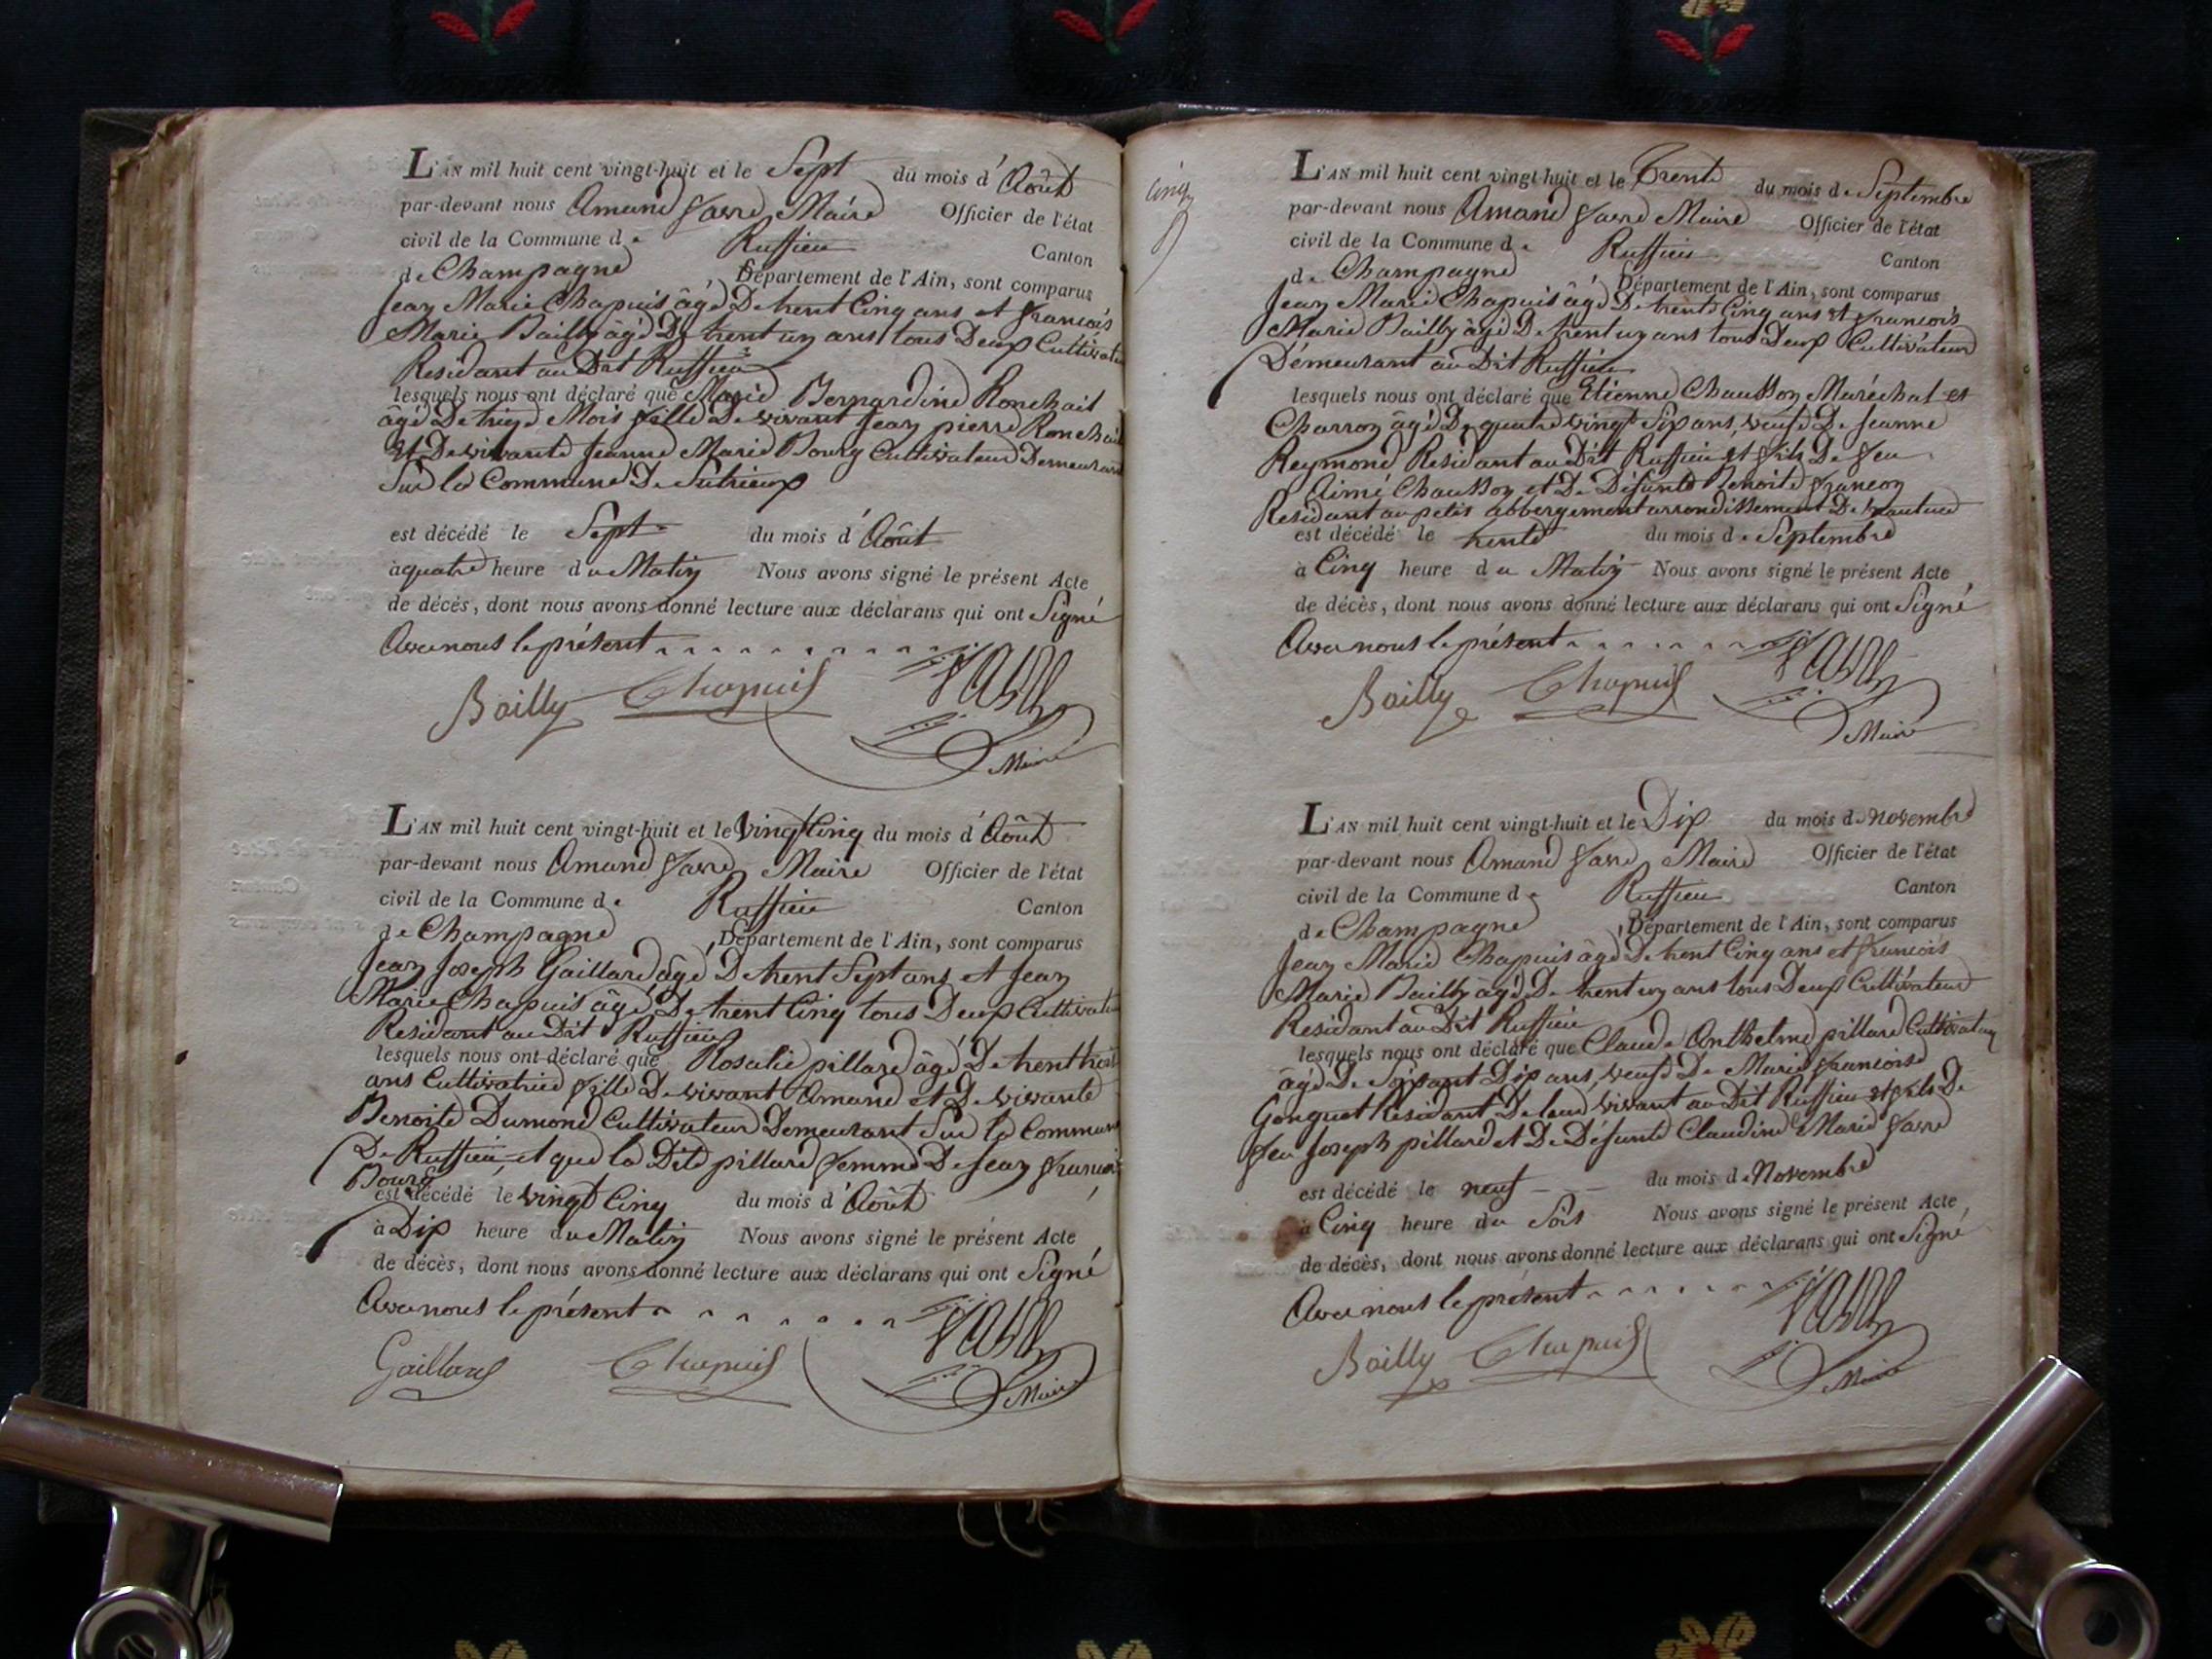 L'AN mil huit cent vingt-huit et le Sept du mois d'Août
par-devant nous Amand favre Maire Officier de l'état
civil de la Commune de Ruffieu Canton
de Champagne, Département de l'Ain, sont comparus
Jean Marie Chapuis âgé De trent Cinq ans et francois
Marie Bailly âgé De trent un ans tous Deux Cultivateu
Residant au Dit Ruffieu
lesquels nous ont déclaré que Marie Bernardine Ronchait
âgé De treize Mois fille De vivant Jean pierre Ronchait
Et De vivante Jeanne Marie Bourg Cultivateur Demeurant
Sur la Commune De Sutrieux
est décédé le Sept du mois d'Août
à quatre heure du Matin Nous avons signé le présent Acte
de décés, dont nous avons donné lecture aux déclarans qui ont Signé
Avec nous le présent
Bailly Chapuis favre
Maire
L'AN mil huit cent vingt-huit et le Vingt Cinq du mois d'Août
par-devant nous Amand favre Maire Officier de l'état
civil de la Commune de Ruffieu Canton
de Champagne, Département de l'Ain, sont comparus
Jean Joseph Gaillard âgé De trent Sept ans et Jean
Marie Chapuis âgé De trent Cinq tous Deux Cultivate
Residant au Dit Ruffieu
lesquels nous ont déclaré que Rosalie pillard âgé De trent
ans Cultivatrice fille De vivant Amand et De vivante
Benoite Dumond Cultivateur Demeurant Sur la Commune
De Ruffieu et que la Dite pillard femme De Jean francois
Bourg
est décédé le vingt Cinq du mois d'Août
à Dix heure du Matin Nous avons signé le présent Acte
de décés, dont nous avons donné lecture aux déclarans qui ont Signé
Avec nous le présent
Gaillard Chapuis favre
Maire
Cinq
L'AN mil huit cent vingt-huit et le Trente du mois de Septembre
par-devant nous Amand favre Maire Officier de l'état
civil de la Commune de Ruffieu Canton
de Champagne, Département de l'Ain, sont comparus
Jean Marie Chapuis âgé De trente Cinq ans et francois
Marie Bailly âgé De trent un ans tous Deux Cultivateur
Demeurant au Dit Ruffieu
lesquels nous ont déclaré que Etienne Chausson Maréchal et
Charron âgé De quatre vingt Six ans, veuf De Jeanne
Reymond Residant au Dit Ruffieu et fils De feu
Aimé Chausson et De Défunte Benoite francon
Residant au petit abbergement arrondissement De Nantua
est décédé le trente du mois de Septembre
à Cinq heure du Matin Nous avons signé le présent Acte
de décés, dont nous avons donné lecture aux déclarans qui ont Signé
Avec nous le présent
Bailly Chapuis favre
Maire
L'AN mil huit cent vingt-huit et le Dix du mois de Novembre
par-devant nous Amand favre Maire Officier de l'état
civil de la Commune de Ruffieu Canton
de Champagne, Département de l'Ain, sont comparus
Jean Marie Chapuis âgé De trent Cinq ans et francois
Marie Bailly âgé De trent un ans tous Deux Cultivateur
Residant au Dit Ruffieu
lesquels nous ont déclaré que Claude Anthelme pillard Cultivateur
âgé De Soixant Dix ans, veuf De Marie francoise
Gonguet Residant De leur vivant au Dit Ruffieu et fils De
feu Joseph pillard et De Défunte Claudine Marie favre
est décédé le neuf du mois de Novembre
à Cinq heure du Soir Nous avons signé le présent Acte
de décés, dont nous avons donné lecture aux déclarans qui ont Signé
Avec nous le présent
Bailly Chapuis favre
Maire